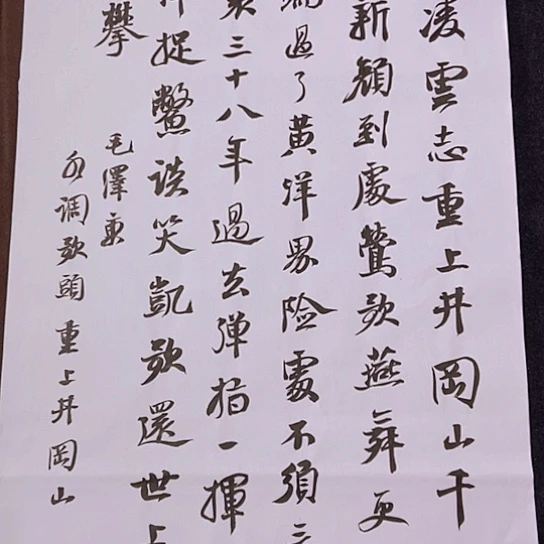 凌雲志重上井岡山千
新顔到處鶯歌燕舞更
過了黄洋界险處不須
三十八年過去弹指一揮
捉鱉談笑凱歌還世上
攀
毛澤東
水调歌頭重上井岡山